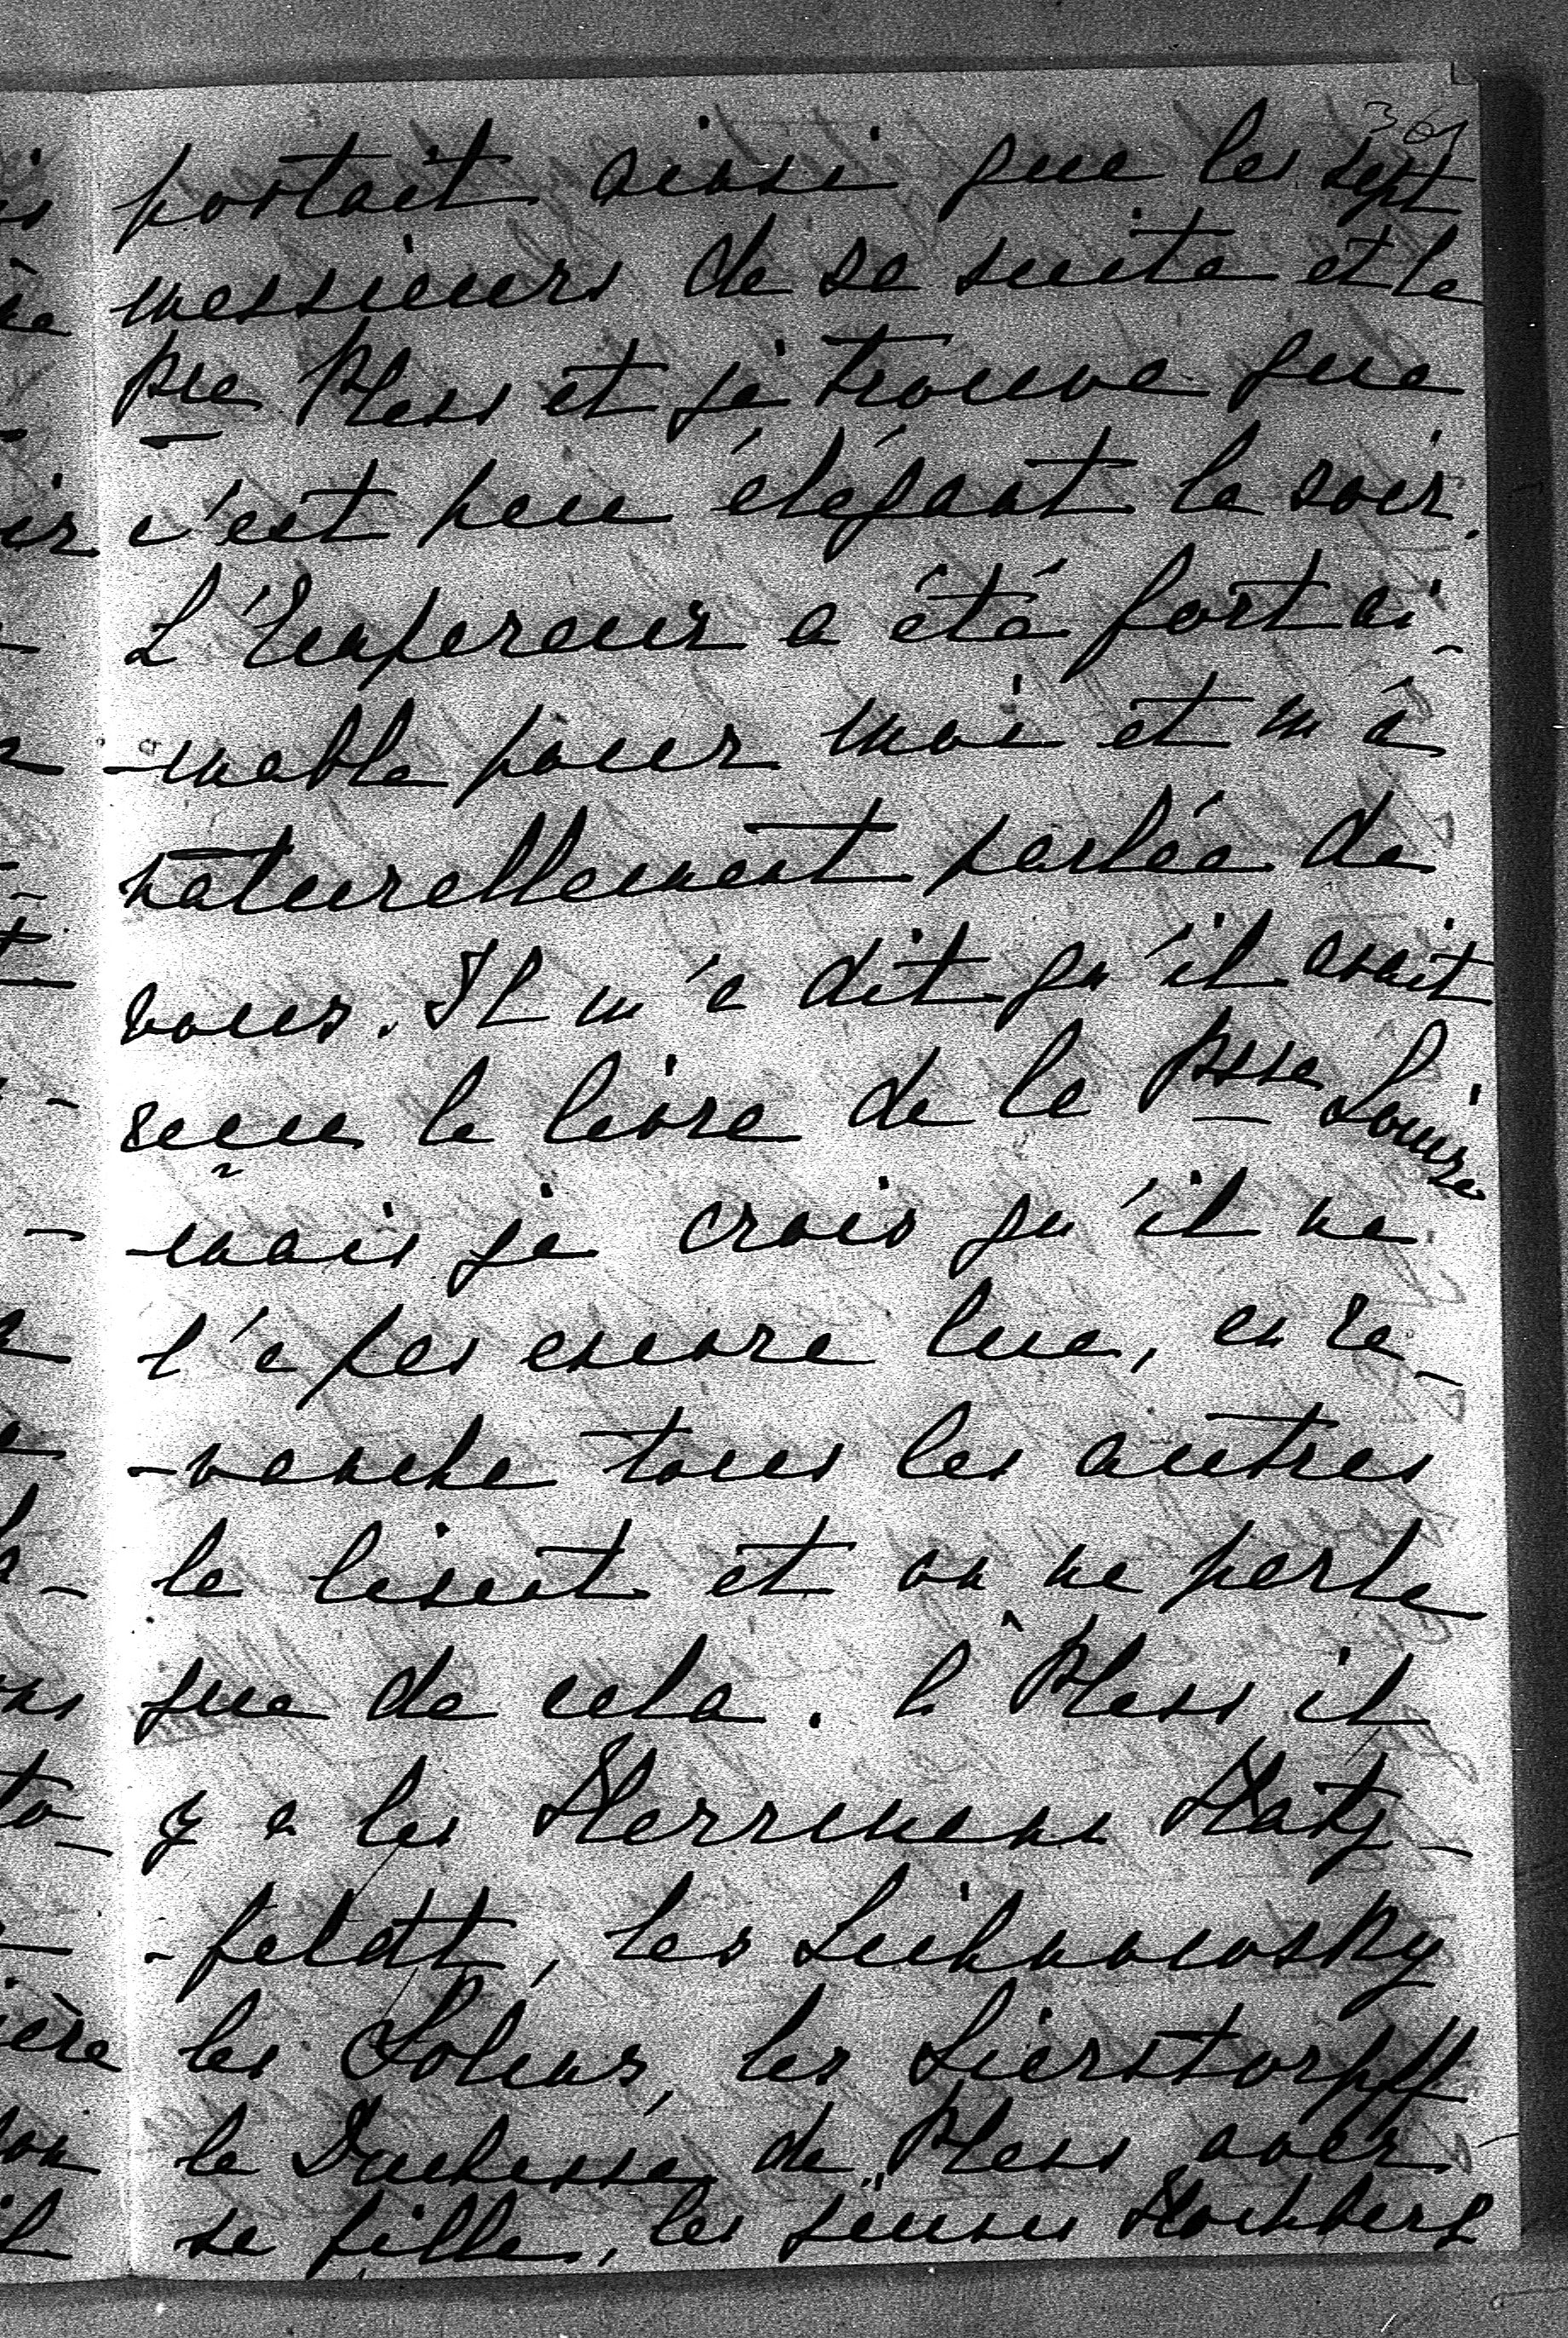 301
portait ainsi que les sept
messieurs de sa suite et le
Pce Pless et je trouve que
c'est peu élégant le soir.
L'Empereur a été fort ai-
-mable pour moi et m'a
naturellement parlée de
vous. Il m'a dit qu'il avait
reçu le livre de la Psse Louise
mais je crois qu'il ne
l'a pas encore lue, en re-
-vanche tous les autres
le lisent et on ne parle
que de cela. à Pless il
y a les Herrmann Hatz-
-feldt, les Lichnowsky
les Solms, les Sierstorpff
la Duchesse de Pless avec
sa fille, les jeunes Hochberg